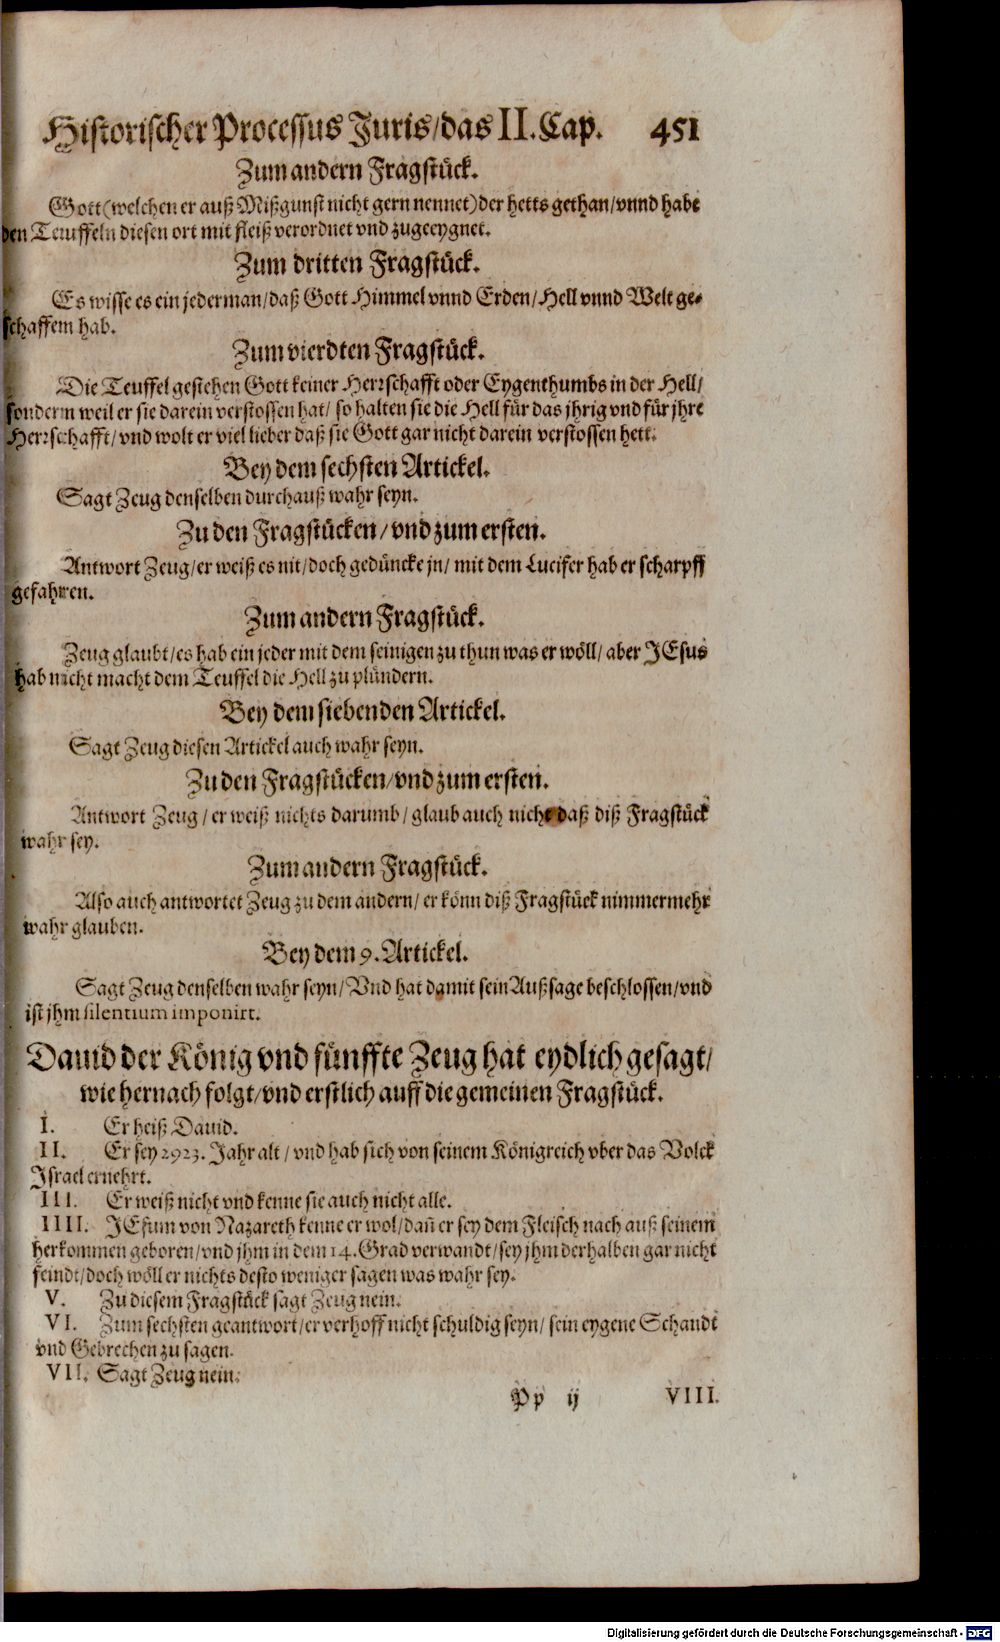 Historischer Processus Juris/das II. Cap. 451
Zum andern Fragstück.
Gott (welchen er auß Mißgunst nicht gern nennet) der hetts gethan/vnnd habe
den Teuffeln diesen ort mit fleiß verordnet vnd zugeeygnet.
Zum dritten Fragstück.
Es wisse es ein jederman/daß Gott Himmel vnnd Erden/Hell vnnd Welt ge-
schaffem hab.
Zum vierdten Fragstück.
Die Teuffel gestehen Gott keiner Herrschafft oder Eygenthumbs in der Hell/
sonderm weil er sie darein verstossen hat/ so halten sie die Hell für das jhrig vnd für jhre
Herrschafft/vnd wolt er viel lieber daß sie Gott gar nicht darein verstossen hett.
Bey dem sechsten Artickel.
Sagt Zeug denselben durchauß wahr seyn.
Zu den Fragstücken/vnd zum ersten.
Antwort Zeug/er weiß es nit/doch gedüncke jn/ mit dem Lucifer hab er scharpff
gefahren.
Zum andern Fragstück.
Zeug glaubt/es hab ein jeder mit dem seinigen zu thun was er wöll/ aber JEsus
hab nicht macht dem Teuffel die Hell zu plündern.
Bey dem siebenden Artickel.
Sagt Zeug diesen Artickel auch wahr seyn.
Zu den Fragstücken/vnd zum ersten.
Antwort Zeug/ er weiß nichts darumb/ glaub auch nicht daß diß Fragstück
wahr sey.
Zum andern Fragstück.
Also auch antwortet Zeug zu dem andern/ er könn diß Fragstück nimmermehr
wahr glauben.
Bey dem 9. Artickel.
Sagt Zeug denselben wahr seyn/ Vnd hat damit sein Außsage beschlossen/vnd
ist jhm silentium imponirt.
Dauid der König vnd fünffte Zeug hat eydlich gesagt/
wie hernach folgt/vnd erstlich auff die gemeinen Fragstück.
I. Er heiß Dauid.
II. Er sey 2923. Jahr alt/ vnd hab sich von seinem Königreich vber das Volck
Israel ernehrt.
III. Er weiß nicht vnd kenne sie auch nicht alle.
IIII. JEsum von Nazareth kenne er wol/dañ er sey dem Fleisch nach auß seinem
herkommen geboren/vnd jhm in dem 14. Grad verwandt/sey jhm derhalben gar nicht
feindt/doch wöll er nichts desto weniger sagen was wahr sey.
V. Zu diesem Fragstück sagt Zeug nein.
VI. Zum sechsten geantwort/er verhoff nicht schuldig seyn/ sein eygene Schandt
vnd Gebrechen zu sagen.
VII. Sagt Zeug nein.
Pp ij VIII.
Digitalisierung gefördert durch die Deutsche Forschungsgemeinschaft - DFG